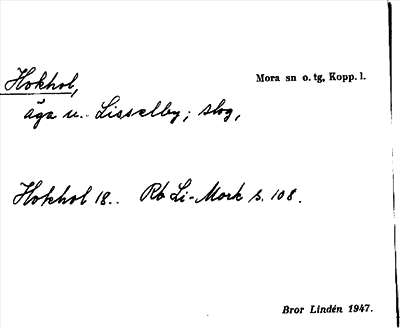 Hokhol, Mora sn o. tg, Kopp. l.
äga u. Lisselby; slog,
Hokhol 18.. Rb Li-Mork s. 108.
Bror Lindén 1947.